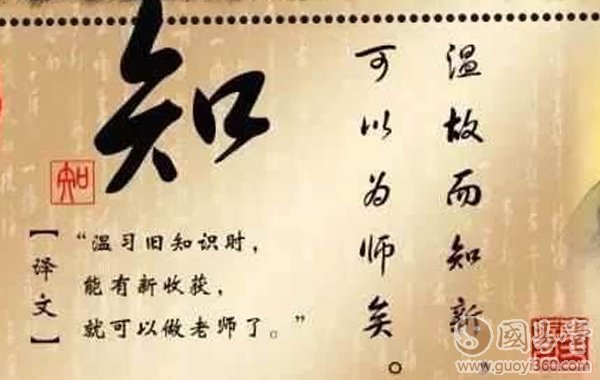 知
知
温故而知新
可以为师矣。
【译文】
“温习旧知识时，
能有新收获，
就可以做老师了。”
國易堂
www.guoyi360.com